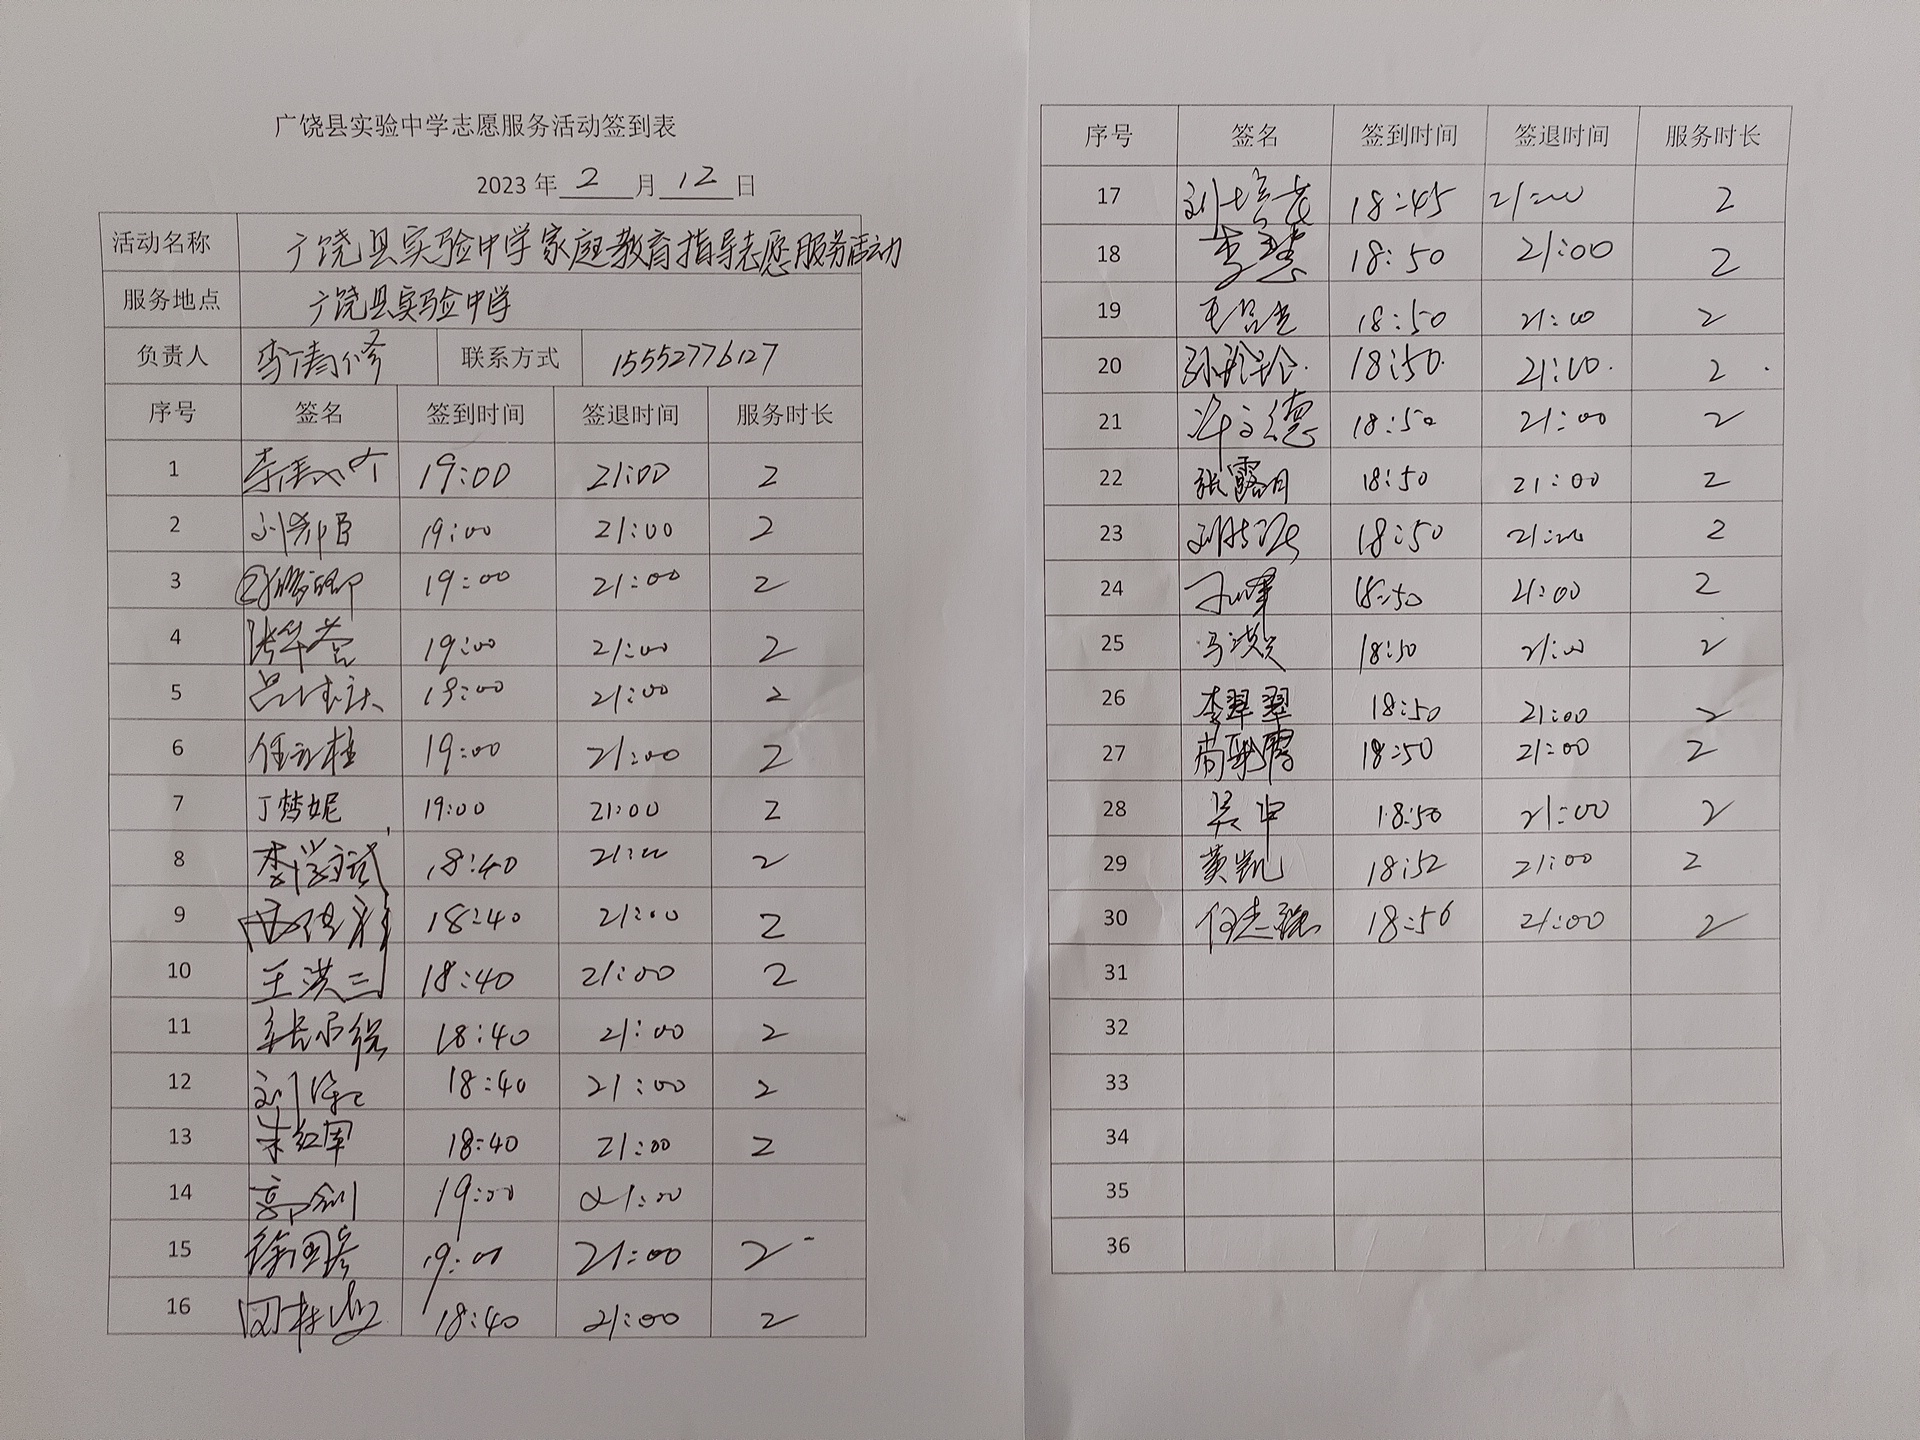 广饶县实验中学志愿服务活动签到表
2023 年 2 月 12 日
活动名称 广饶县实验中学家庭教育指导志愿服务活动
服务地点 广饶县实验中学
负责人 联系方式 15552776127
序号 签名 签到时间 签退时间 服务时长
1 19:00 21:00 2
2 19:00 21:00 2
3 19:00 21:00 2
4 19:00 21:00 2
5 19:00 21:00 2
6 19:00 21:00 2
7 丁梦妮 19:00 21:00 2
8 李学斌 18:40 21:00 2
9 18:40 21:00 2
10 王洪三 18:40 21:00 2
11 18:40 21:00 2
12 18:40 21:00 2
13 朱红军 18:40 21:00 2
14 郭剑 19:00 21:00
15 徐国彦 19:00 21:00 2
16 18:40 21:00 2
序号 签名 签到时间 签退时间 服务时长
17 18:45 21:00 2
18 李慧 18:50 21:00 2
19 18:50 21:00 2
20 孙玲玲 18:50 21:00 2
21 18:50 21:00 2
22 张露月 18:50 21:00 2
23 18:50 21:00 2
24 18:50 21:00 2
25 18:50 21:00 2
26 李翠翠 18:50 21:00 2
27 18:50 21:00 2
28 吴申 18:50 21:00 2
29 黄凯 18:52 21:00 2
30 何志强 18:56 21:00 2
31
32
33
34
35
36